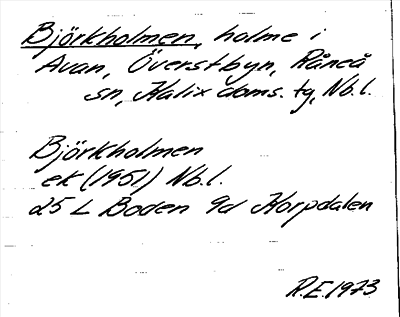 Björkholmen, holme i
Avan, Överstbyn, Råneå
sn, Kalix doms. tg, Nb.l.
Björkholmen
ek (1951) Nb.l.
25 L Boden 9d Korpdalen
R.E. 1973